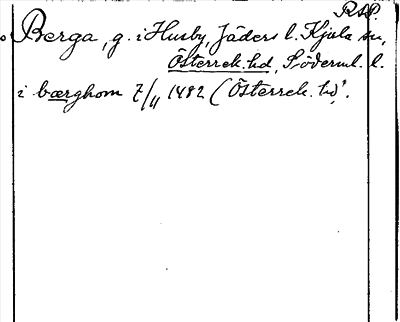 RAP.
Berga, g. i Husby, Jäders l. Kjula sn,
Österrek. hd, Söderml. l.
i bærghom 7/11 1482 (Österrek. hd).